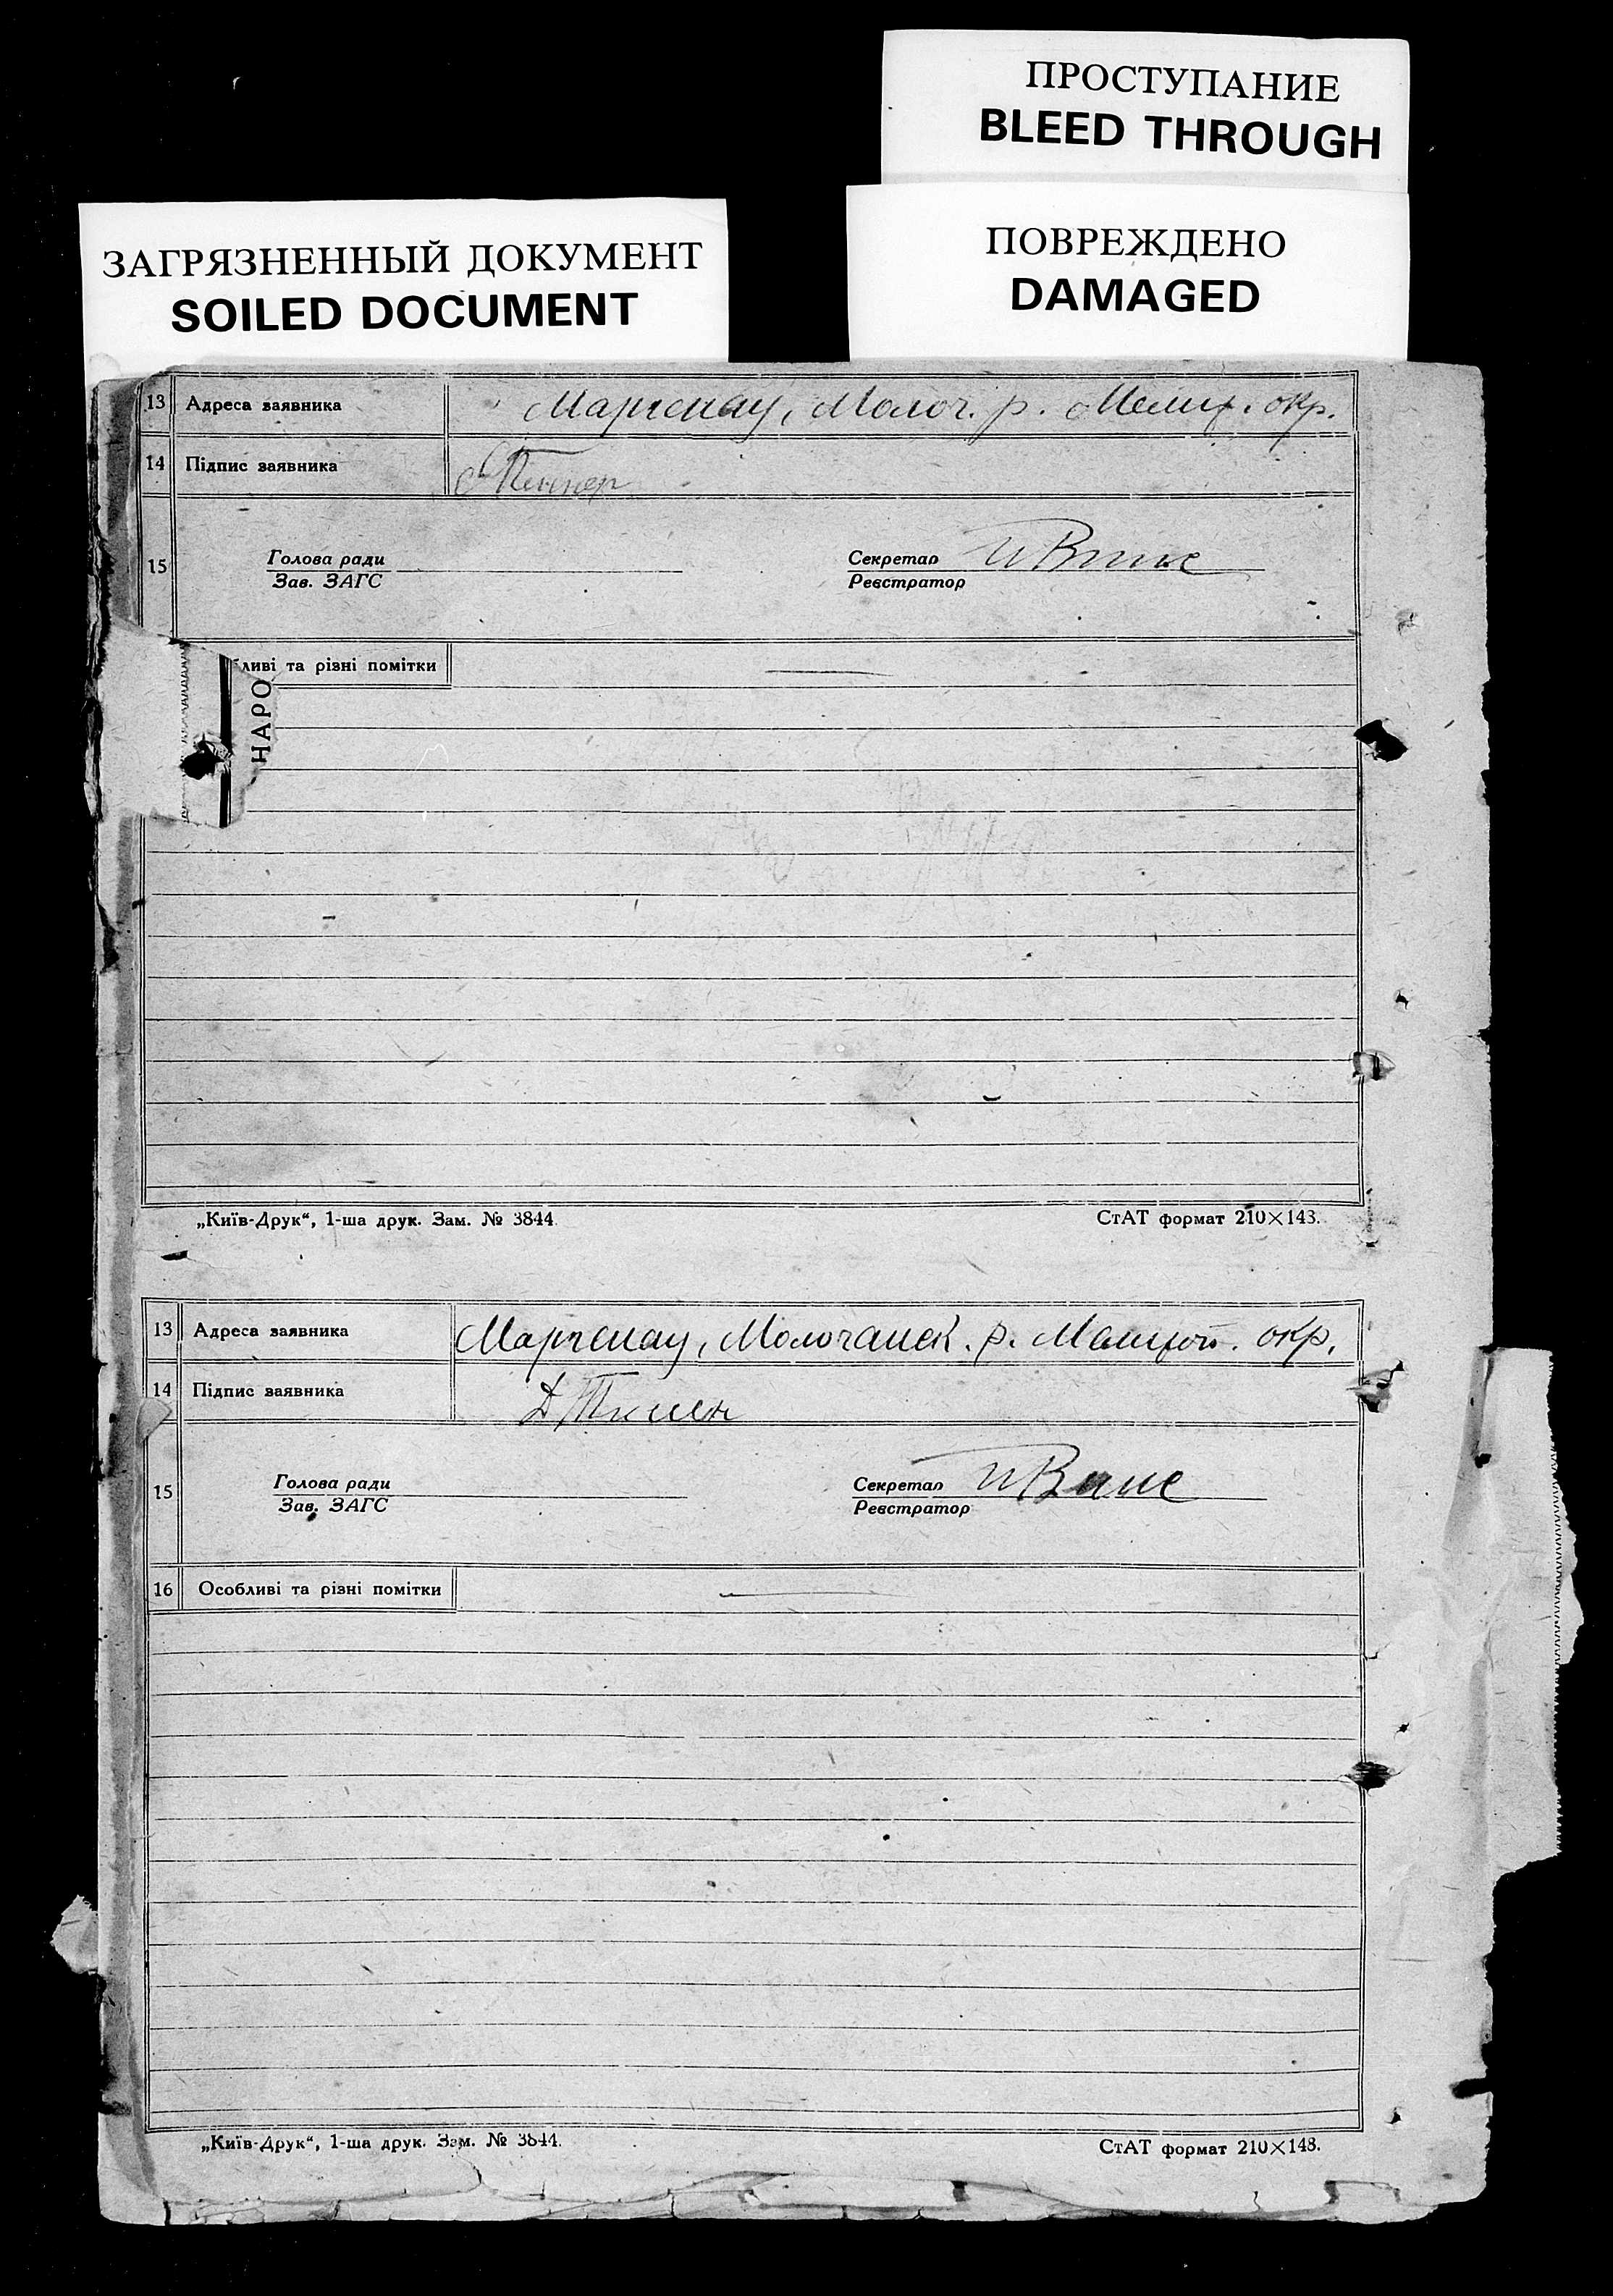 ПРОСТУПАНИЕ
BLEED THROUGH
ЗАГРЯЗНЕННЫЙ ДОКУМЕНТ
SOILED DOCUMENT
ПОВРЕЖДЕНО
DAMAGED
13 Адреса заявника Маргенау, Молоч. р. Мелит. окр.
14 Підпис заявника Пеннер
15 Голова ради Секретар
Зав. ЗАГС Реєстратор
ливі та різні помітки
НАРО
„Київ-Друк“, 1-ша друк. Зам. № 3844. СтАТ формат 210×143.
13 Адреса заявника Маргенау, Молочанск. р. Мелитоп. окр.
14 Підпис заявника
15 Голова ради Секретар
Зав. ЗАГС Реєстратор
16 Особливі та різні помітки
„Київ-Друк“, 1-ша друк. Зам. № 3844. СтАТ формат 210×148.